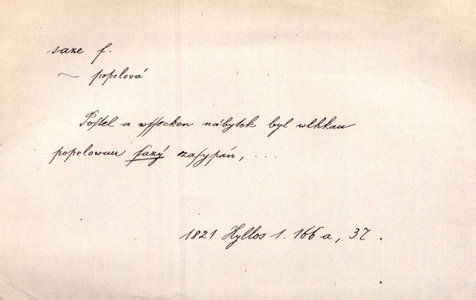 saze f.
~ popelová
Postel a wssecken nábytek byl wlhkau
popelowau sazý zasypán, ...
1821 Hyllos 1. 166 a, 37.